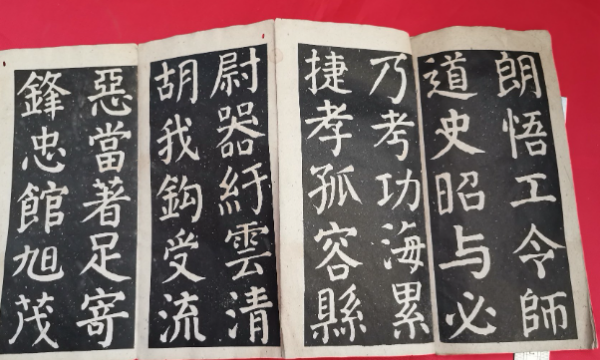 朗悟工令師
道史昭与必
乃考功海累
捷孝孤容縣
尉器紆雲清
胡我鈎受流
惡當著足寄
鋒忠館旭茂